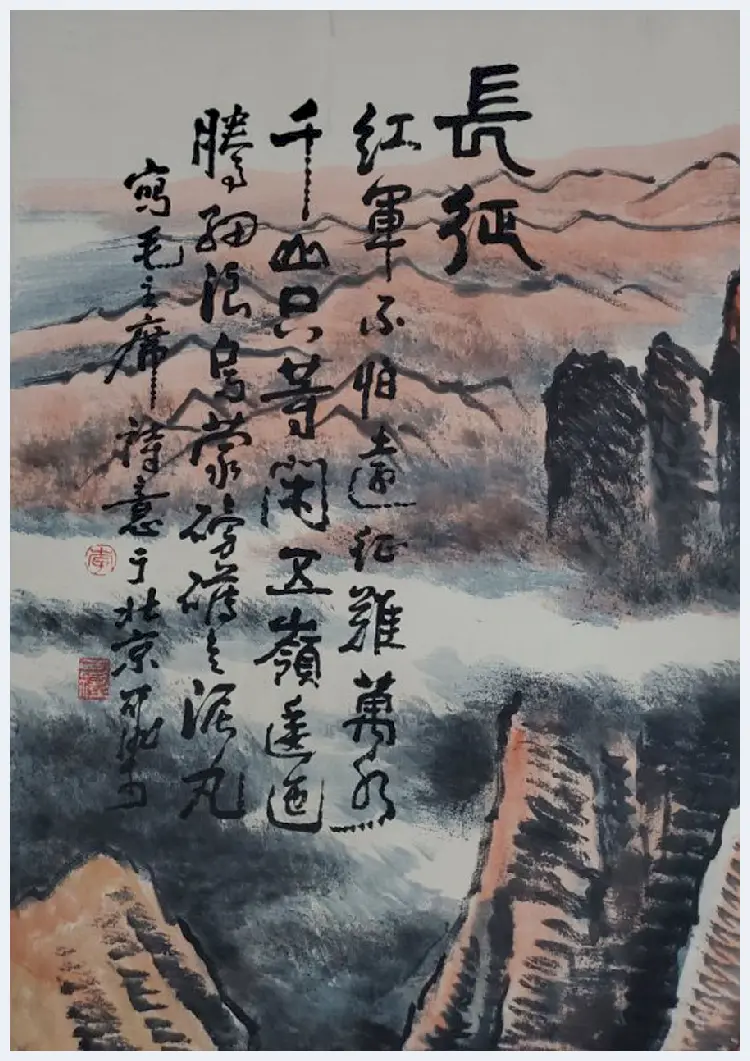 長征
紅軍不怕遠征難萬水
千山只等閑五嶺逶迤
騰細浪烏蒙磅礴走泥丸
寫毛主席詩意于北京可染
李